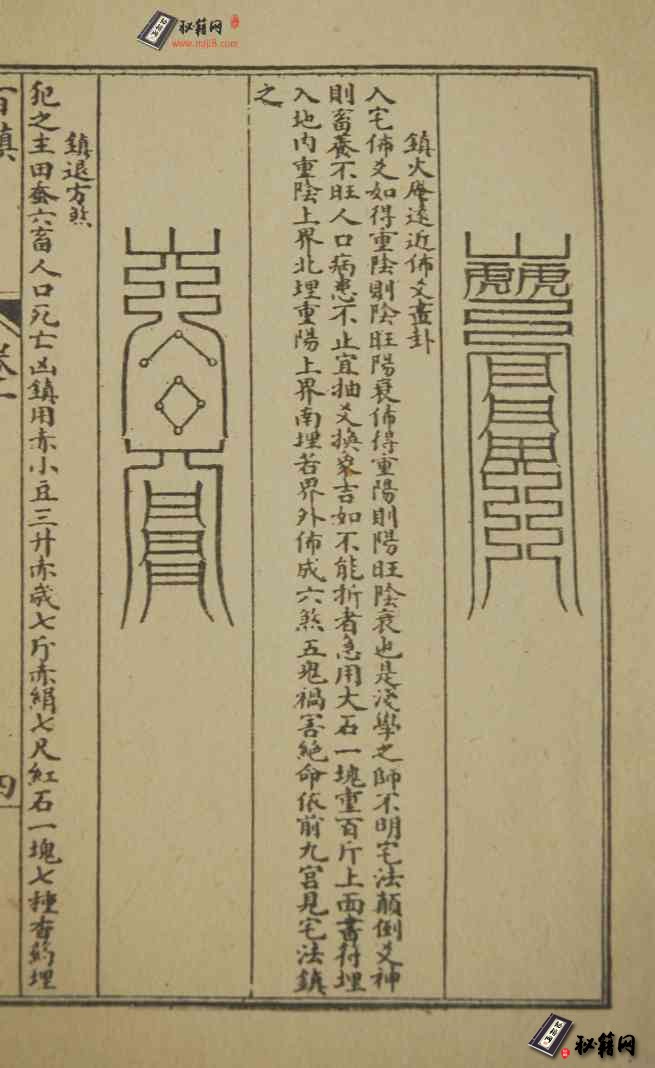 秘籍网
www.miji8.com
鎮火庵遠近佈爻畫卦
入宅佈爻如得重陰則陰旺陽衰佈得重陽則陽旺陰衰也是淺學之師不明宅法顛倒爻神
則畜養不旺人口病患不止宜抽爻換象吉如不能折者急用大石一塊重百斤上面書符埋
入地內重陰上界北埋重陽上界南埋若界外佈成六煞五鬼禍害絕命依前九宮見宅法鎮
之
鎮退方煞
犯之主田蚕六畜人口死亡凶鎮用赤小豆三升赤
七斤赤絹七尺紅石一塊七種香藥埋
百鎮
卷二
四
秘籍网